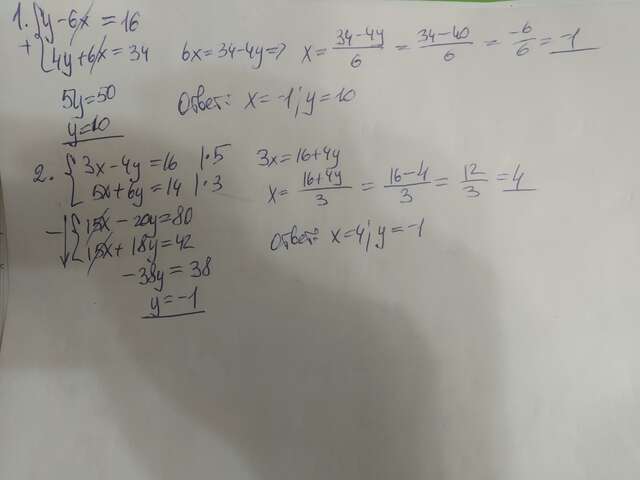 1. { y - 6x = 16
+ { 4y + 6x = 34 6x = 34 - 4y => x = (34 - 4y)/6 = (34 - 40)/6 = -6/6 = -1
5y = 50 Ответ: x = -1; y = 10
y = 10
2. { 3x - 4y = 16 | · 5 3x = 16 + 4y
{ 5x + 6y = 14 | · 3 x = (16 + 4y)/3 = (16 - 4)/3 = 12/3 = 4
- { 15x - 20y = 80
{ 15x + 18y = 42 Ответ: x = 4; y = -1
-38y = 38
y = -1